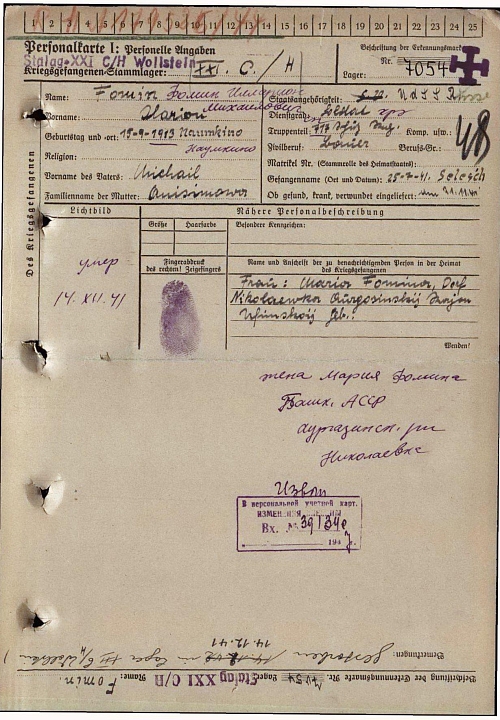 1 2 3 4 5 6 7 8 9 10 11 12 13 14 15 16 17 18 19 20 21 22 23 24 25
Personalkarte I: Personelle Angaben
Stalag XXI C/H Wollstein
Kriegsgefangenen-Stammlager: XXI. C./H
Beschriftung der Erkennungsmarke
Nr. 7054
Lager:
Des Kriegsgefangenen
Name: Fomin Фомин Илларион
Vorname: Ilarion Михайлович
Geburtstag und -ort: 15-9-1913 Naumkino
Наумкино
Religion:
Vorname des Vaters: Michail
Familienname der Mutter: Anisimowa
Staatsangehörigkeit: U d S S R Russe
Dienstgrad: Soldat
Truppenteil: Komp. usw.:
Zivilberuf: Bauer Berufs-Gr.:
Matrikel Nr. (Stammrolle des Heimatstaates):
Gefangennahme (Ort und Datum): 25-7-41.
Ob gesund, krank, verwundet eingeliefert:
48
Lichtbild
умер
14. XII. 41
Nähere Personalbeschreibung
Größe Haarfarbe Besondere Kennzeichen:
Fingerabdruck
des rechten! Zeigefingers
Name und Anschrift der zu benachrichtigenden Person in der Heimat
des Kriegsgefangenen
Frau: Maria Fomina, Dorf
Nikolaewka Aurgasinskij Rajon
Ufinskij Gb.:
Wenden!
жена Мария Фомина
Башк. АССР
аургазинск. рн
Николаевка
В персональной учетной карт.
Вх. №
194
Bemerkungen: gestorben in Lager
14.12.41
Beschriftung der Erkennungsmarke Nr. 7054 Lager: Stalag XXI C/H Name: Fomin.